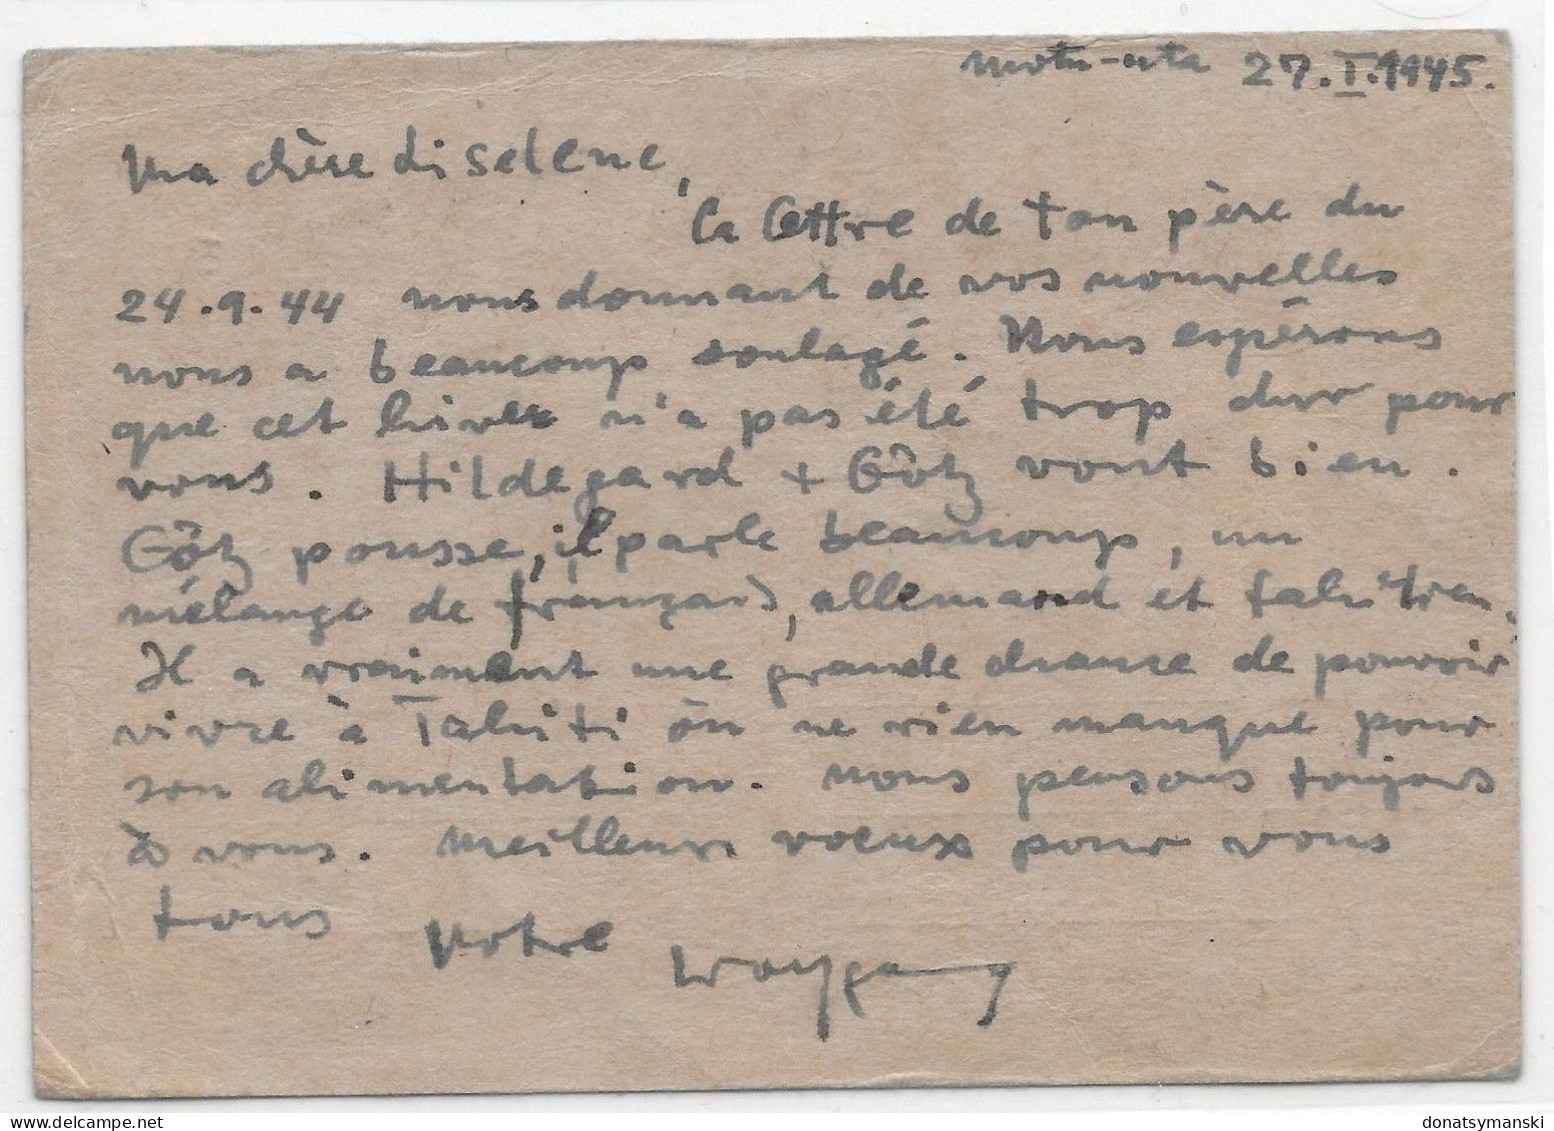 Motu-uta 27.I.1945.
Ma chère Liselene,
la lettre de ton père du
24.9.44 nous donnant de vos nouvelles
nous a beaucoup soulagé. Nous espérons
que cet hiver n'a pas été trop dur pour
vous. Hildegard + Götz vont bien.
Götz pousse, il parle beaucoup, un
mélange de français, allemand et tahitien.
Il a vraiment une grande chance de pouvoir
vivre à Tahiti où ne rien manque pour
son alimentation. Nous pensons toujours
à vous. Meilleurs voeux pour vous
tous Votre Wolfgang
donatsymanski